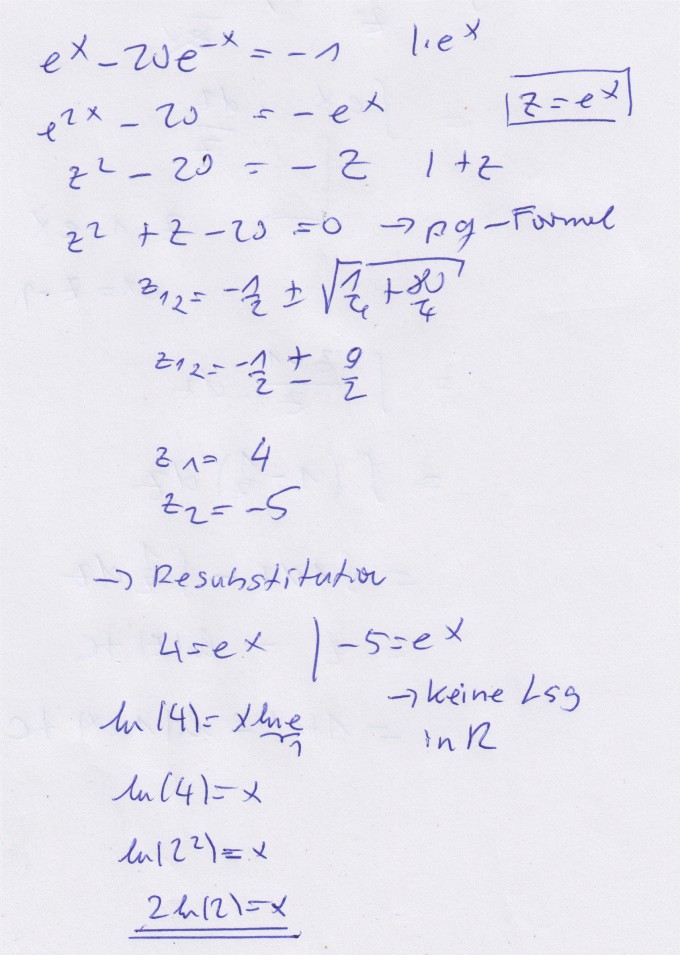 eˣ - 20e⁻ˣ = -1 |·eˣ
e²ˣ - 20 = -eˣ z = eˣ
z² - 20 = -z | +z
z² + z - 20 = 0 → pq-Formel
z₁₂ = -1/2 ± √(1/4 + 80/4)
z₁₂ = -1/2 ± 9/2
z₁ = 4
z₂ = -5
→ Resubstitution
4 = eˣ | -5 = eˣ
→ keine Lsg
in R
ln(4) = x ln e
1
ln(4) = x
ln(2²) = x
2 ln(2) = x